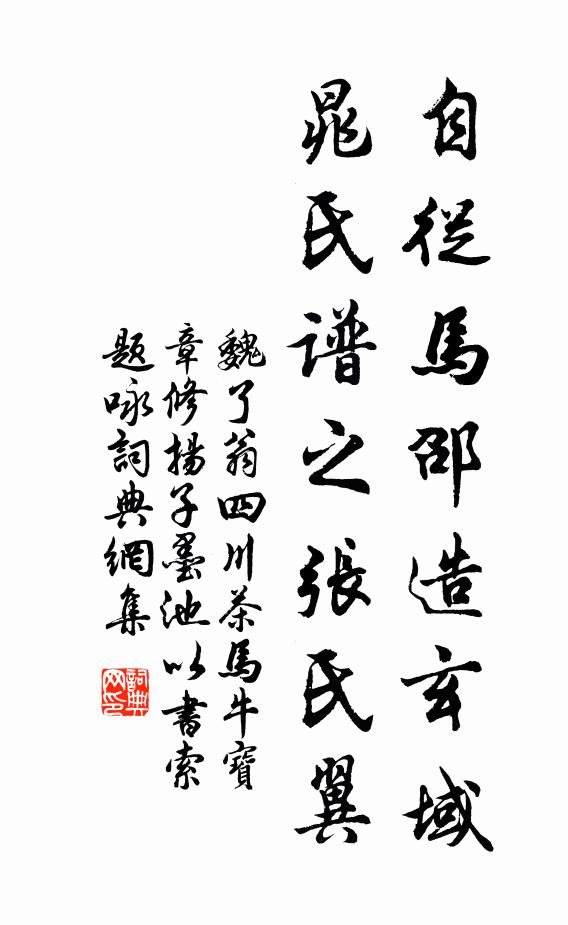 自從馬邵造玄域
晁氏譜之張氏翼
魏了翁四川茶馬牛寶
章修揚子墨池以書索
題咏詞典網集
詞典网印